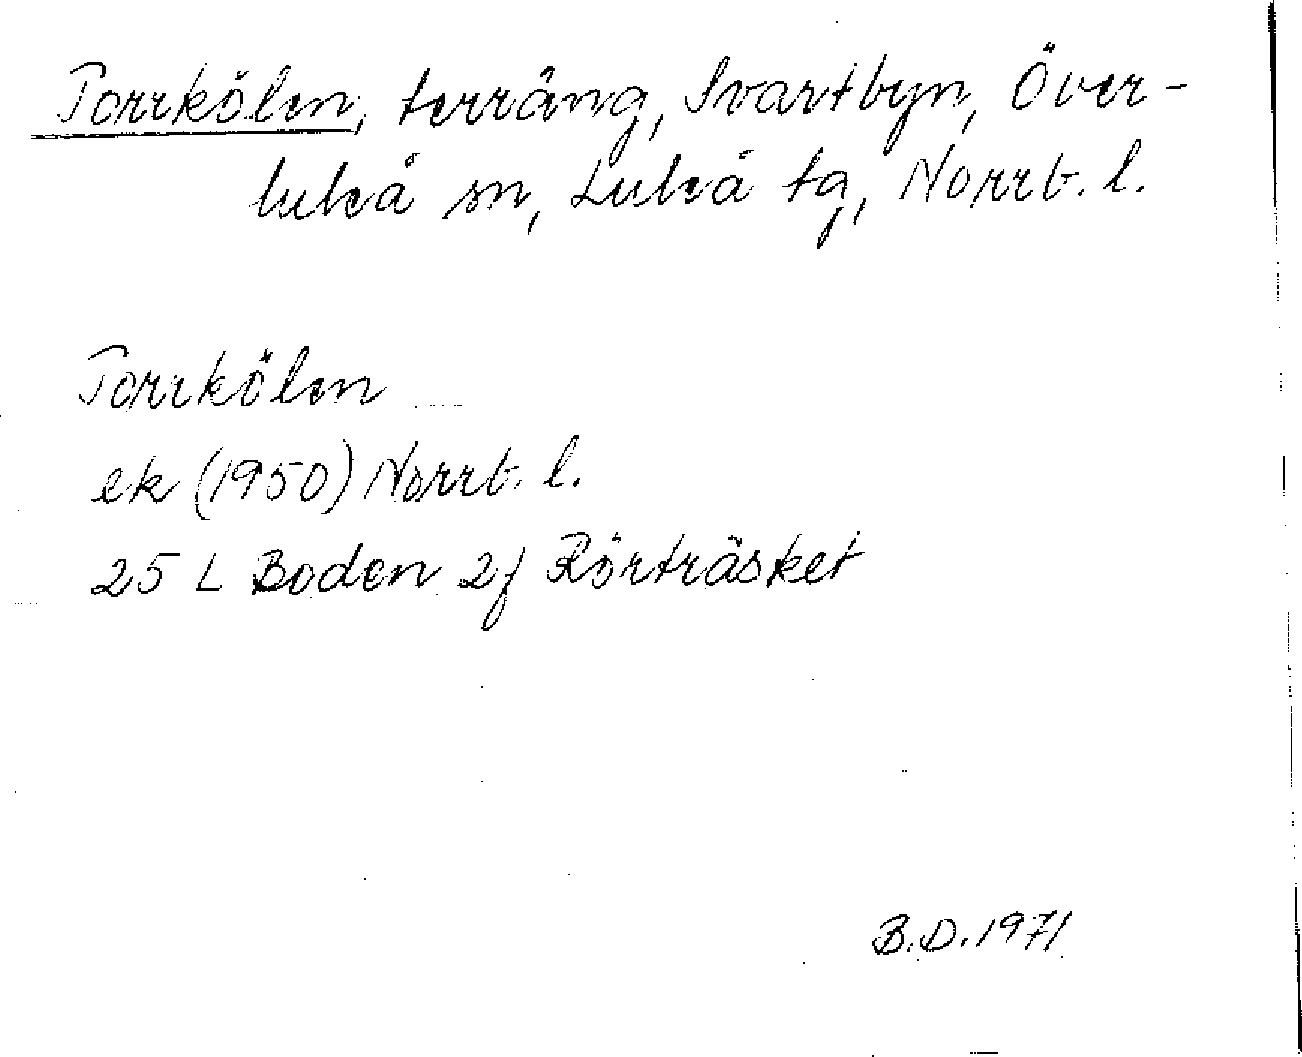 Torrkölen, terräng, Svartbyn, Över-
luleå sn, Luleå tg, Norrb. l.
Torrkölen
ek (1950) Norrb. l.
25 L Boden 2j Rörträsket
B.D. 1971